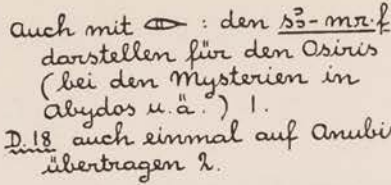 Auch mit 𓂋 : den sꜣ-mr.f
darstellen für den Osiris
(bei den Mysterien in
Abydos u. ä.) 1.
D. 18 auch einmal auf Anubi
übertragen 2.